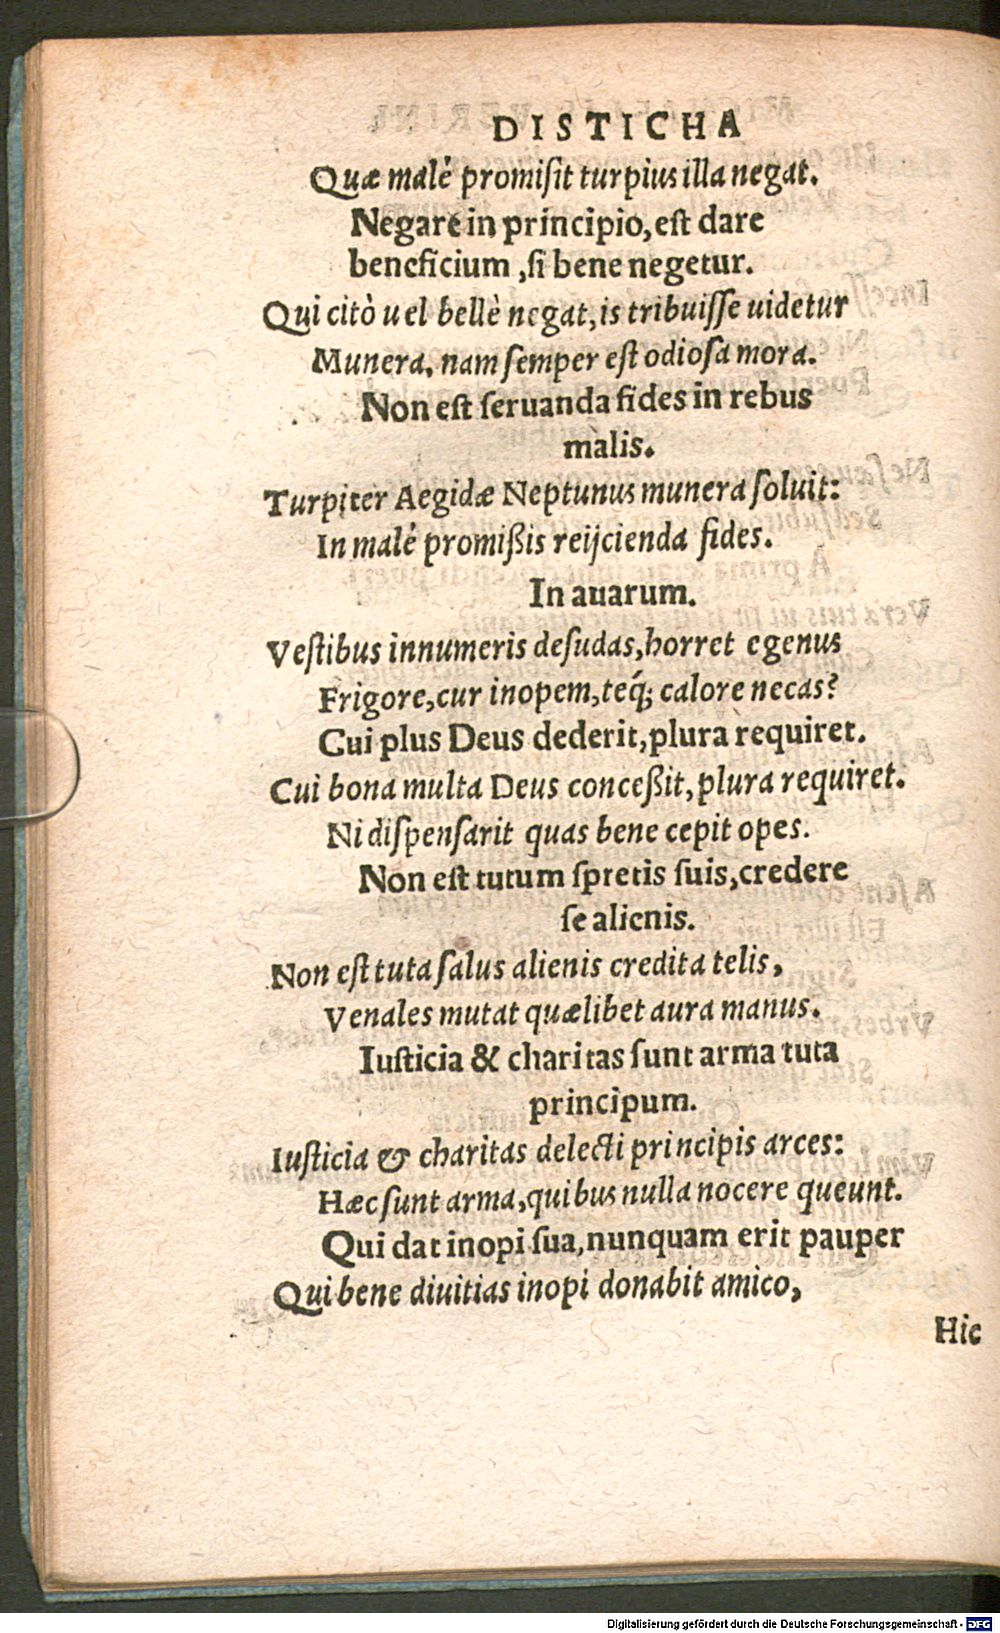 DISTICHA
Quæ malè promiſit turpius illa negat.
Negare in principio, eſt dare
beneficium, ſi bene negetur.
Qui citò uel bellè negat, is tribuiſſe uidetur
Munera, nam ſemper eſt odioſa mora.
Non eſt ſeruanda fides in rebus
malis.
Turpiter Aegidæ Neptunus munera ſoluit:
In malè promißis reijcienda fides.
In auarum.
Veſtibus innumeris deſudas, horret egenus
Frigore, cur inopem, teq́; calore necas?
Cui plus Deus dederit, plura requiret.
Cui bona multa Deus conceßit, plura requiret.
Ni diſpenſarit quas bene cepit opes.
Non eſt tutum ſpretis ſuis, credere
ſe alienis.
Non eſt tuta ſalus alienis credita telis,
Venales mutat quælibet aura manus.
Iuſticia & charitas ſunt arma tuta
principum.
Iuſticia & charitas delecti principis arces:
Hæc ſunt arma, quibus nulla nocere queunt.
Qui dat inopi ſua, nunquam erit pauper
Qui bene diuitias inopi donabit amico,
Hic
Digitalisierung gefördert durch die Deutsche Forschungsgemeinschaft - DFG